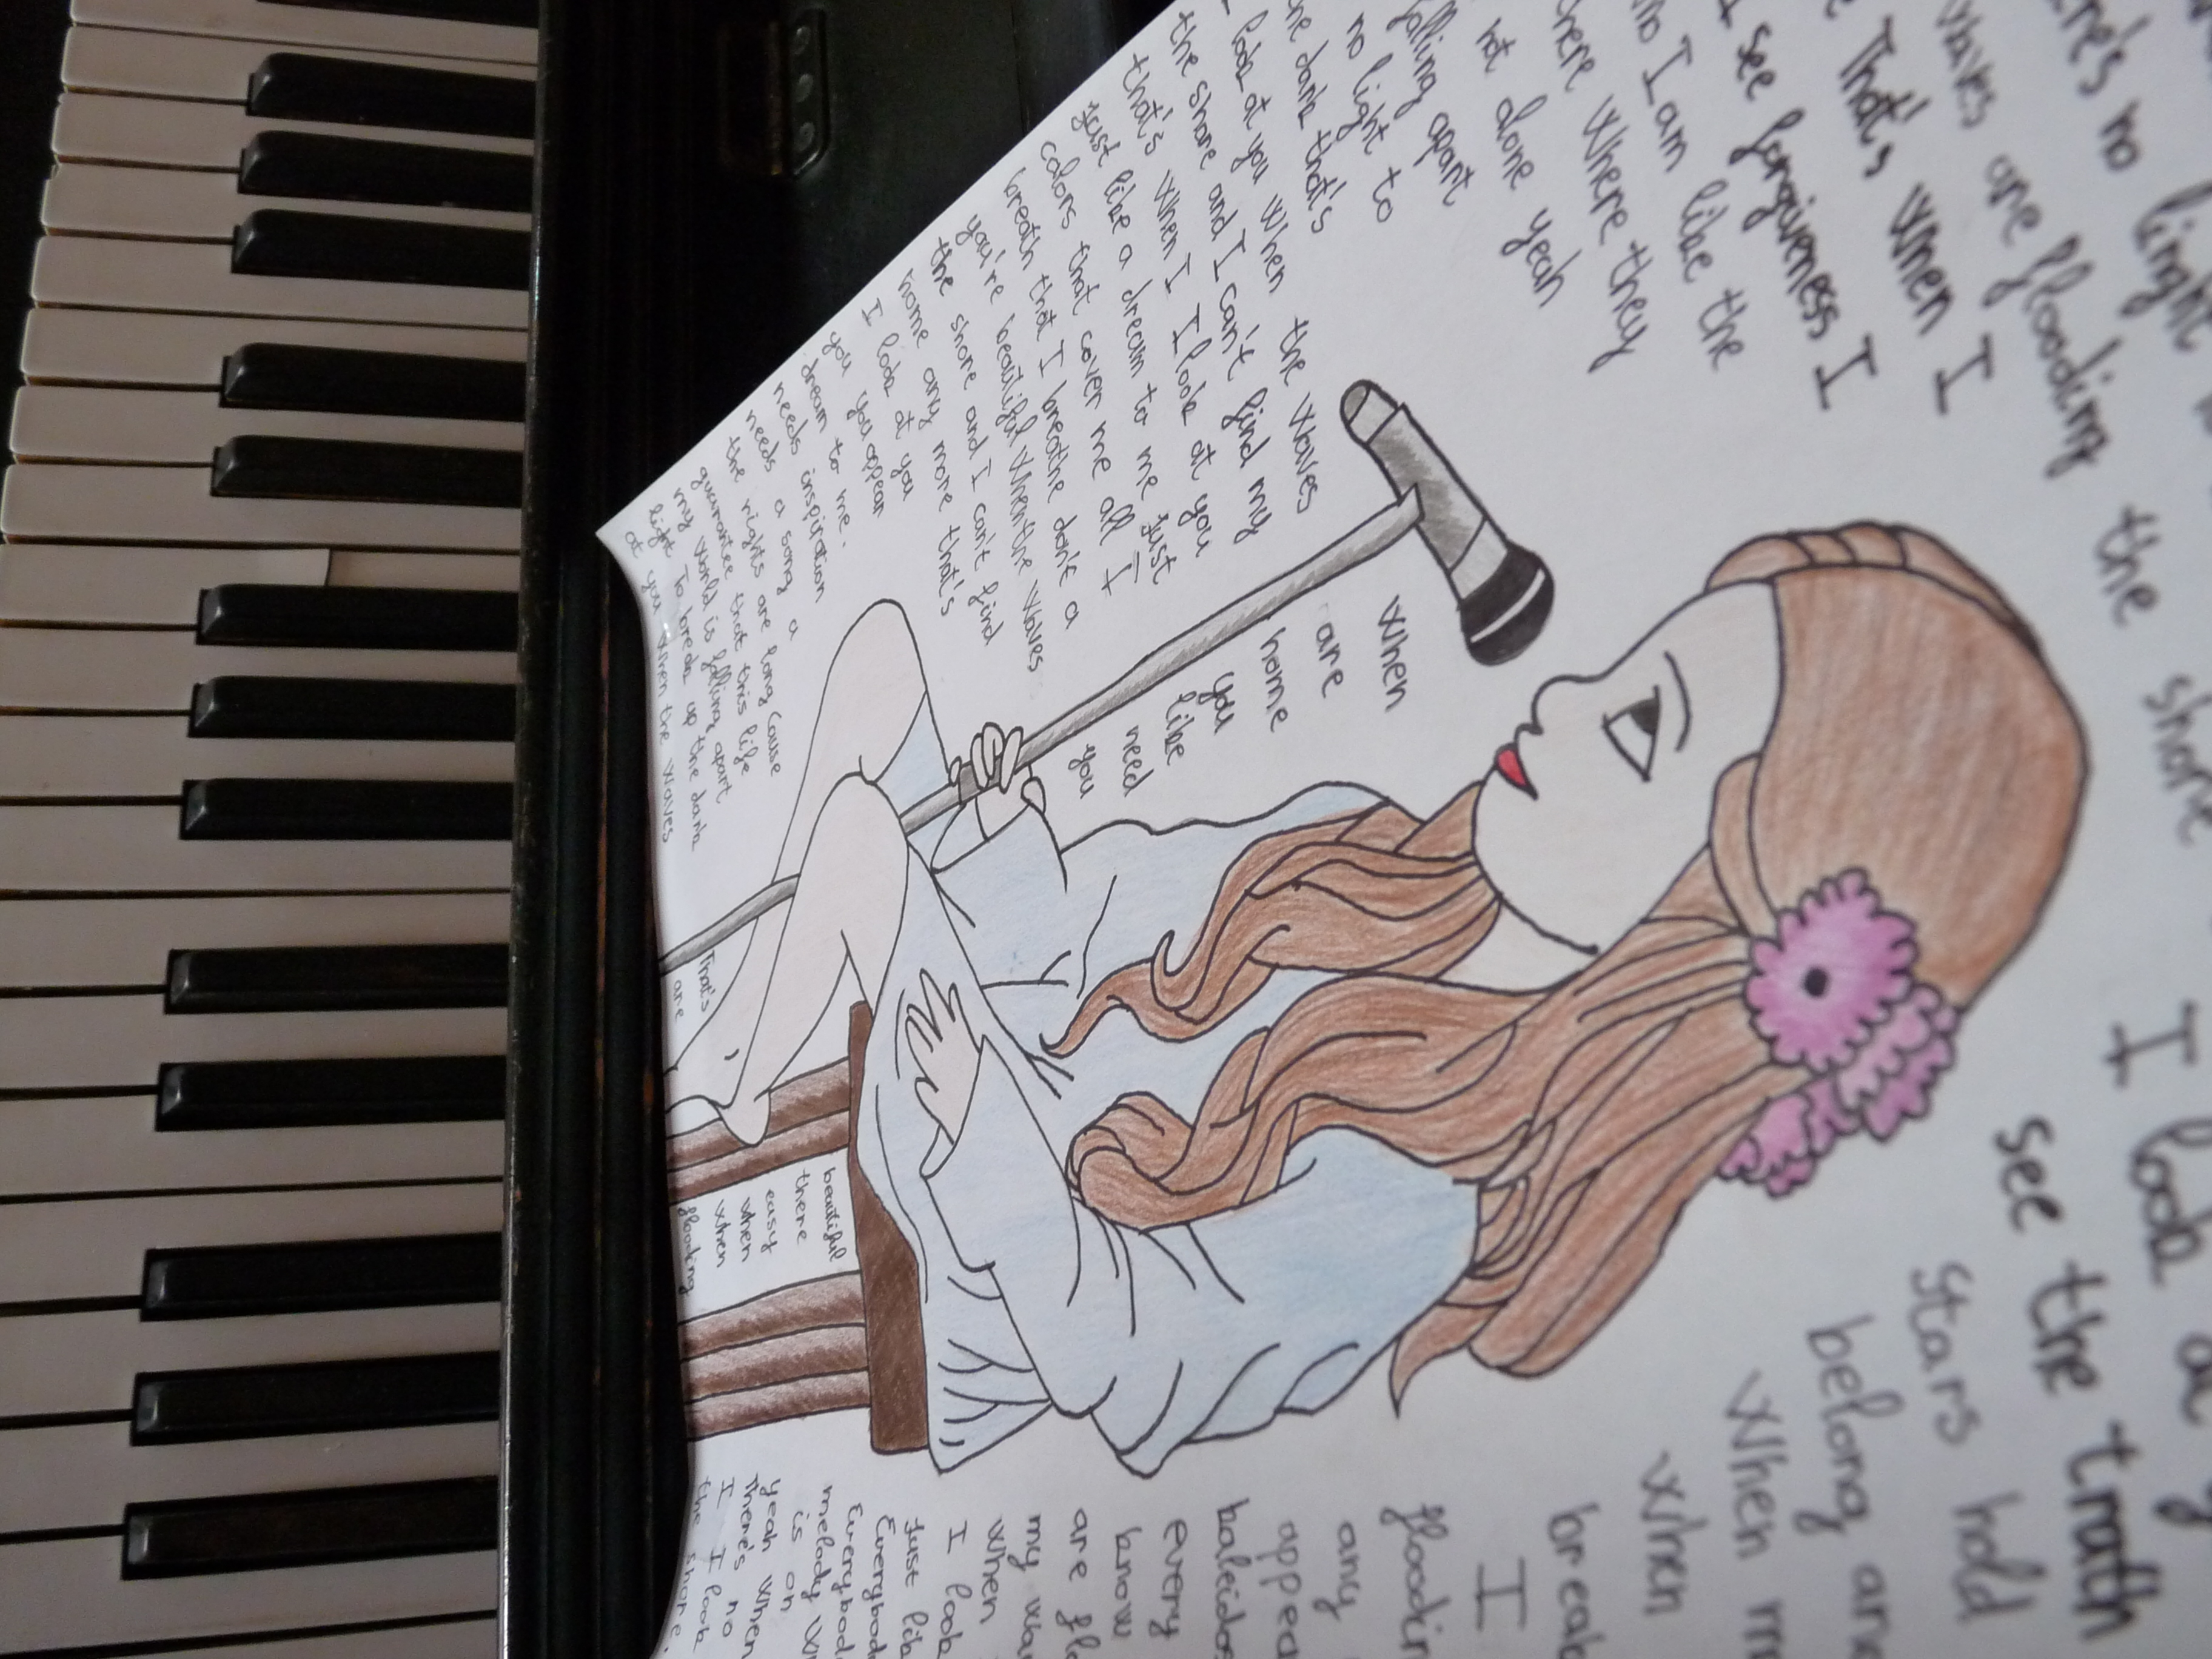 ere's no
waves are flooding the shore I look a
That's when I see the truth
I see forgiveness I
no I am like the
there where they
not alone yeah
falling apart
no light to
the dark that's
look at you when the waves
the shore and I can't find my
that's when I I look at you
just like a dream to me just
colors that cover me all I
breath that I breathe don't a
you're beautiful when the waves
the shore and I can't find
home any more that's
I look at you
you you appear
dream to me.
needs inspiration
needs a song a
the nights are long Cause
guarantee that this life
my world is falling apart
light To break up the dark
at you when the waves
when
are
home
you
like
need
you
That's
are
Stars hold
belong an
When m
when
break
I
floodin
any
appea
kaleidos
every
know
are flo
my wa
when
I look
Just lik
Everybod
Everybod
melody w
is on
yeah when
There's no
I I look
the shore.
beautiful
there
easy
when
when
flooding